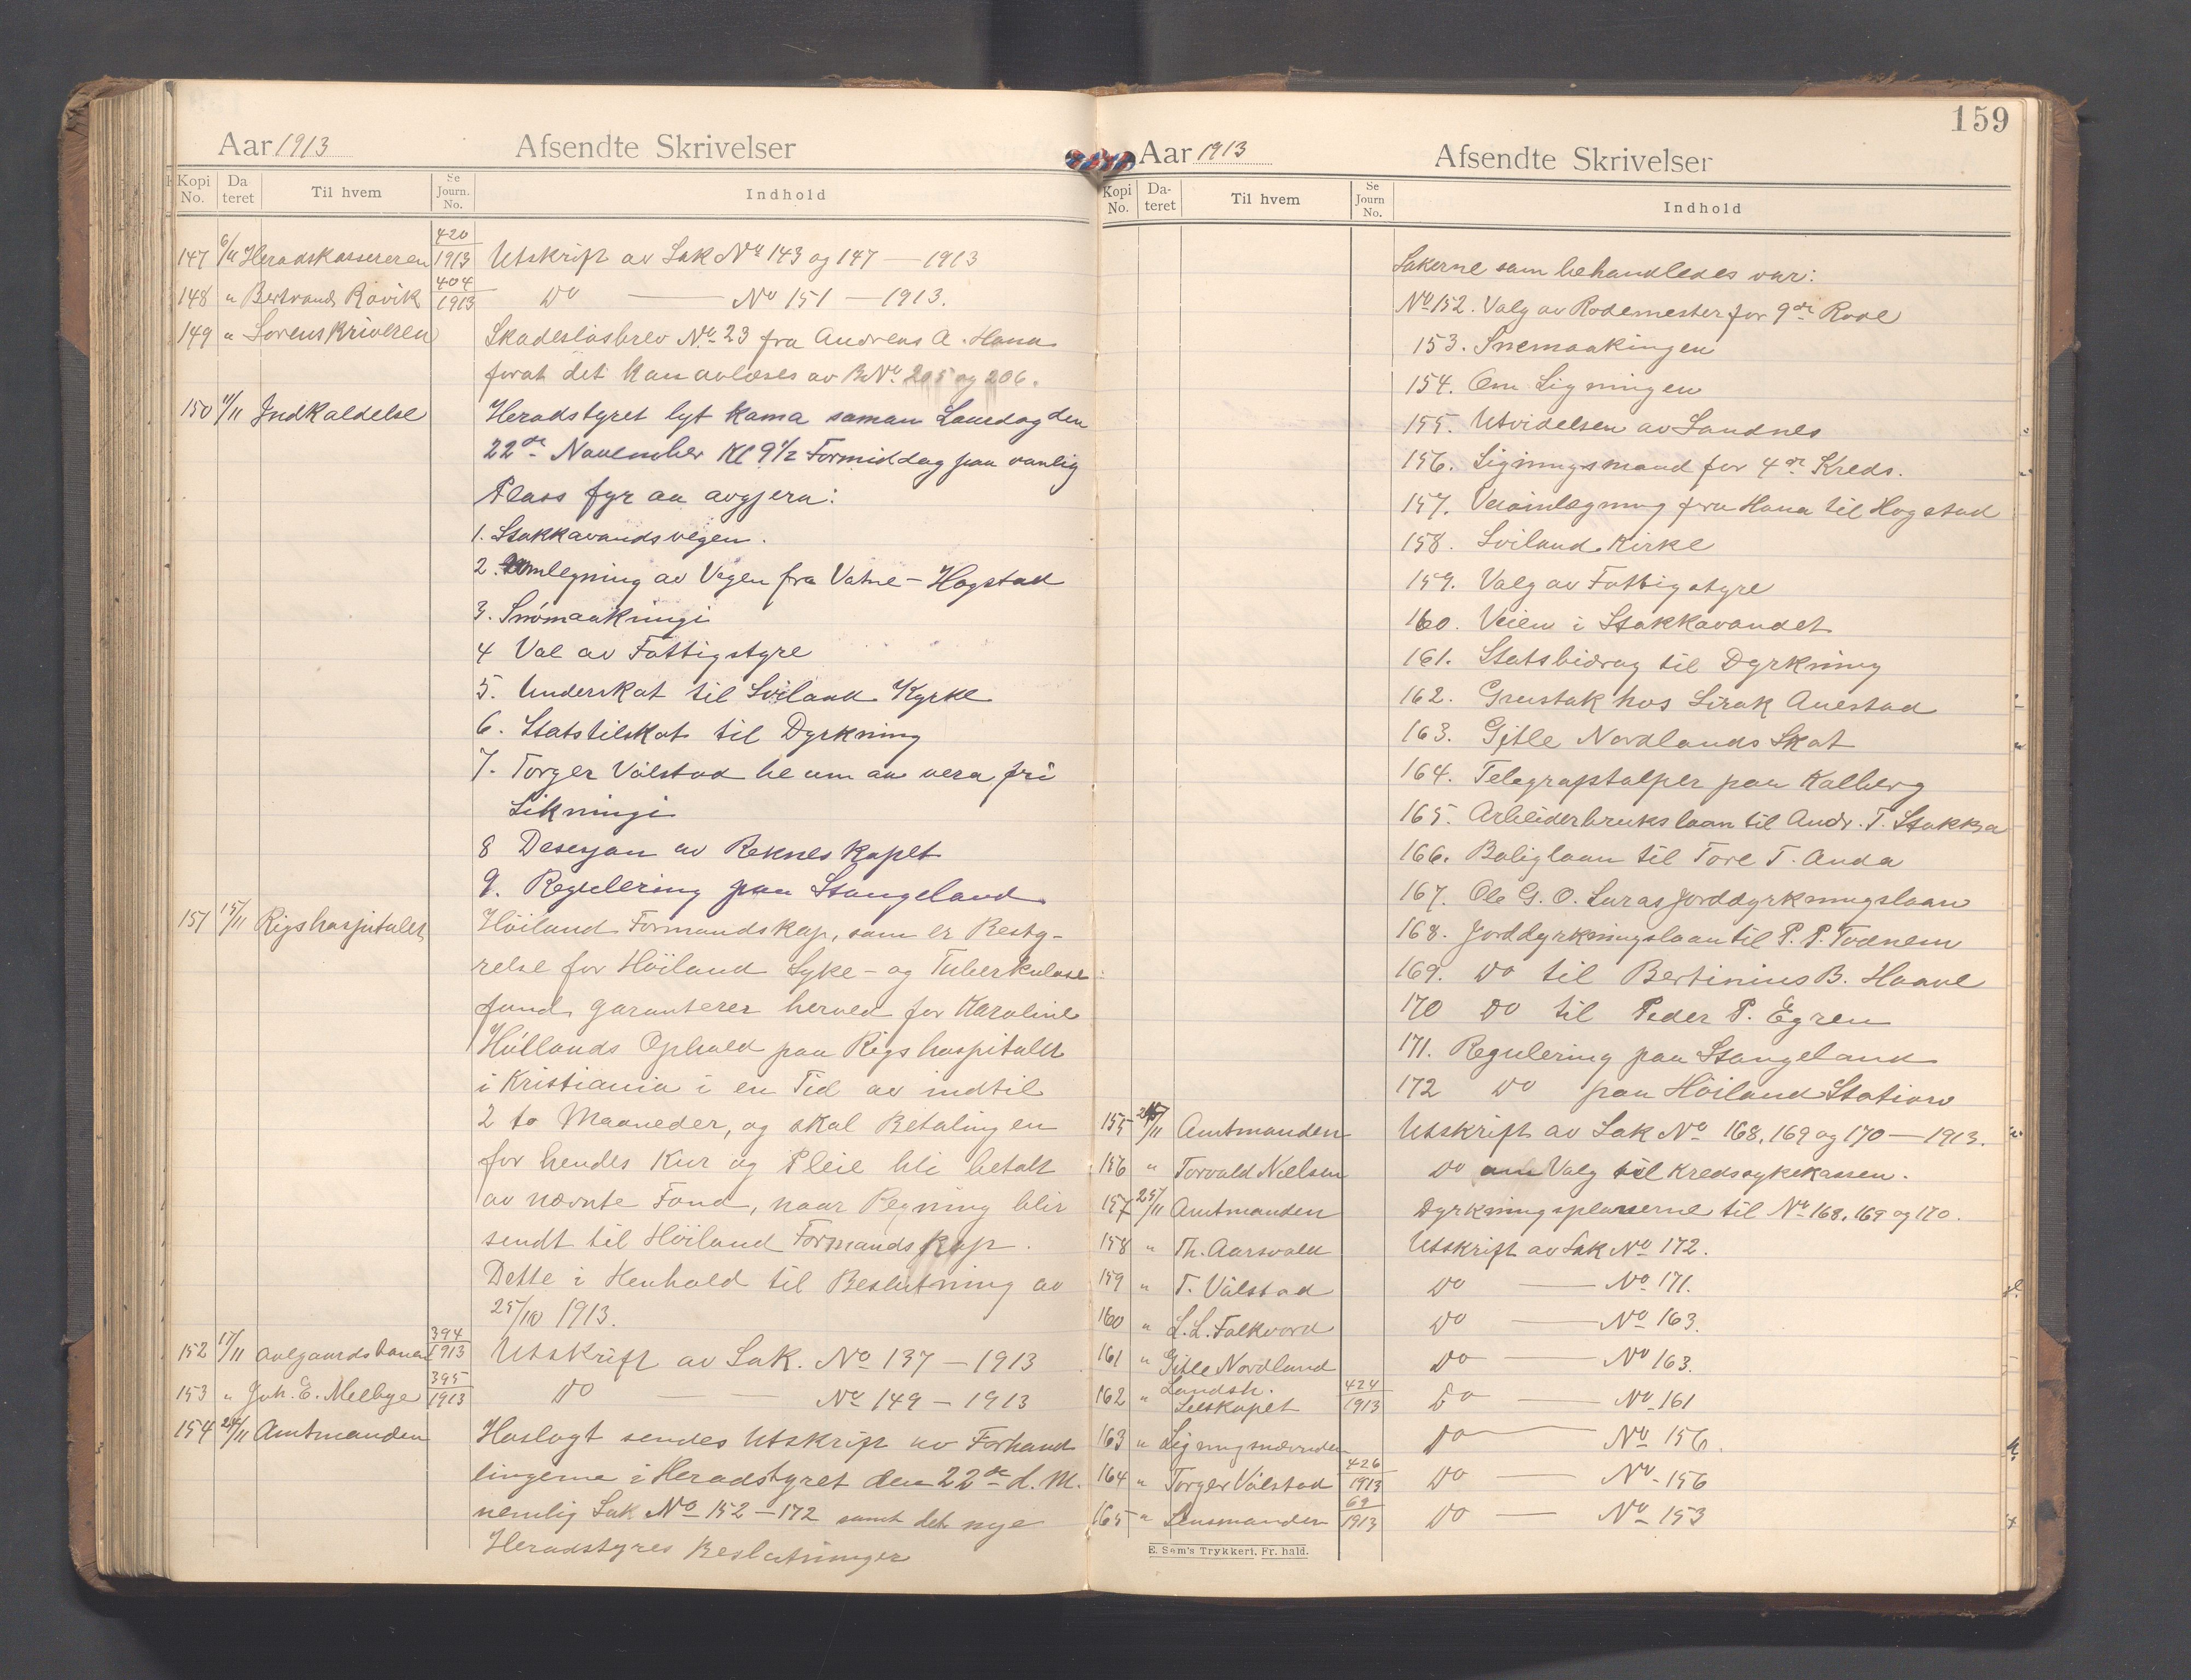 Aar 1913 Afsendte Skrivelser
Kopi No. Da teret Til hvem Se Journ. No. Indhold
147 6/11 Heradskassereren 420/1913 Utskrift av Sak No 143 og 147 — 1913
148 " Bertrand Rovik 404/1913 Do — No 151 — 1913.
149 " Sorenskriveren Skadesløsbrev No 23 fra Andreas A. Hana
forat det kan avlæses av BNo. 205 og 206.
150 11/11 Indkaldelse Heradstyret lyt koma saman Laurdag den
22de November Kl 9 1/2 Formiddag paa vanlig
Plass fyr aa avgjera:
1. Stokkavandsvegen.
2. Omlegning av Vegen fra Vatne - Hogstad
3. Snömaakningi
4 Val av Fattigstyre
5. Underskot til Sviland Kyrke
6. Statstilskot til Dyrkning
7. Torger Válstad be um aa vera fri
Likningi
8 Desesjon av Rekneskapet
9. Regulering paa Stangeland
151 15/11 Rigshospitalet Höiland Formandskap, som er Besty-
relse for Höiland Syke- og Tuberkulose
fond, garanterer herved for Karoline
Höllands Ophold paa Rigshospitalet
i Kristiania i en Tid av indtil
2 to Maaneder, og skal Betalingen
for hendes Kur og Pleie bli betalt
av nævnte Fond, naar Regning blir
sendt til Höiland Formandskap.
Dette i Henhold til Beslutning av
25/10 1913.
152 17/11 Aalgaardsbanen 394/1913 Utskrift av Sak. No 137 — 1913
153 " Joh. E. Mellbye 395/1913 Do — No 149 — 1913
154 24/11 Amtmanden Hoslagt sendes Utskrift av Forhand
lingerne i Heradstyret den 22de d. M.
nemlig Sak No 152 — 172 samt det nye
Heradstyres Beslutninger
159
Aar 1913 Afsendte Skrivelser
Kopi No. Da- teret Til hvem Se Journ No. Indhold
Sakerne som behandledes var:
No 152. Valg av Rodemester for 9de Rode
153. Snemaakingen
154. Om Ligningen
155. Utvidelsen av Sandnes
156. Ligningsmand for 4de Kreds.
157. Veiomlægning fra Hana til Hogstad
158. Sviland Kirke
159. Valg av Fattigstyre
160. Veien i Stokkavandet
161. Statsbidrag til Dyrkning
162. Grustak hos Sirak Auestad
163. Gitle Nordlands Skat
164. Telegrafstolper paa Kalberg
165. Arbeiderbrukslaan til Andr. T. Stokka
166. Boliglaan til Tore T. Auda
167. Ole G. O. Luras Jorddyrkningslaan
168. Jorddyrkningslaan til P. P. Todnem
169. Do til Bertinius B. Haave
170 Do til Peder P. Egren
171. Regulering paa Stangeland
172 Do paa Höiland Station
155 25/11 Amtmanden Utskrift av Sak No 168, 169 og 170 — 1913.
156 " Torvald Nielsen Do om Valg til Kredssykekassen.
157 25/11 Amtmanden Dyrkningsplanerne til No 168, 169 og 170.
158 " Th. Aarsvold Utskrift av Sak No 172.
159 " T. Válstad Do — No 171.
160 " L. L. Folkvord Do — No 163.
161 " Gitle Nordland Do — No 163.
162 " Landsh. Selskapet 424/1913 Do — No 161
163 " Ligningsnævnden Do — No 156.
164 " Torger Válstad 426/1913 Do — No 156
165 " Lensmanden 69/1913 Do — No 153
E. Sem's Trykkeri. Fr. hald.